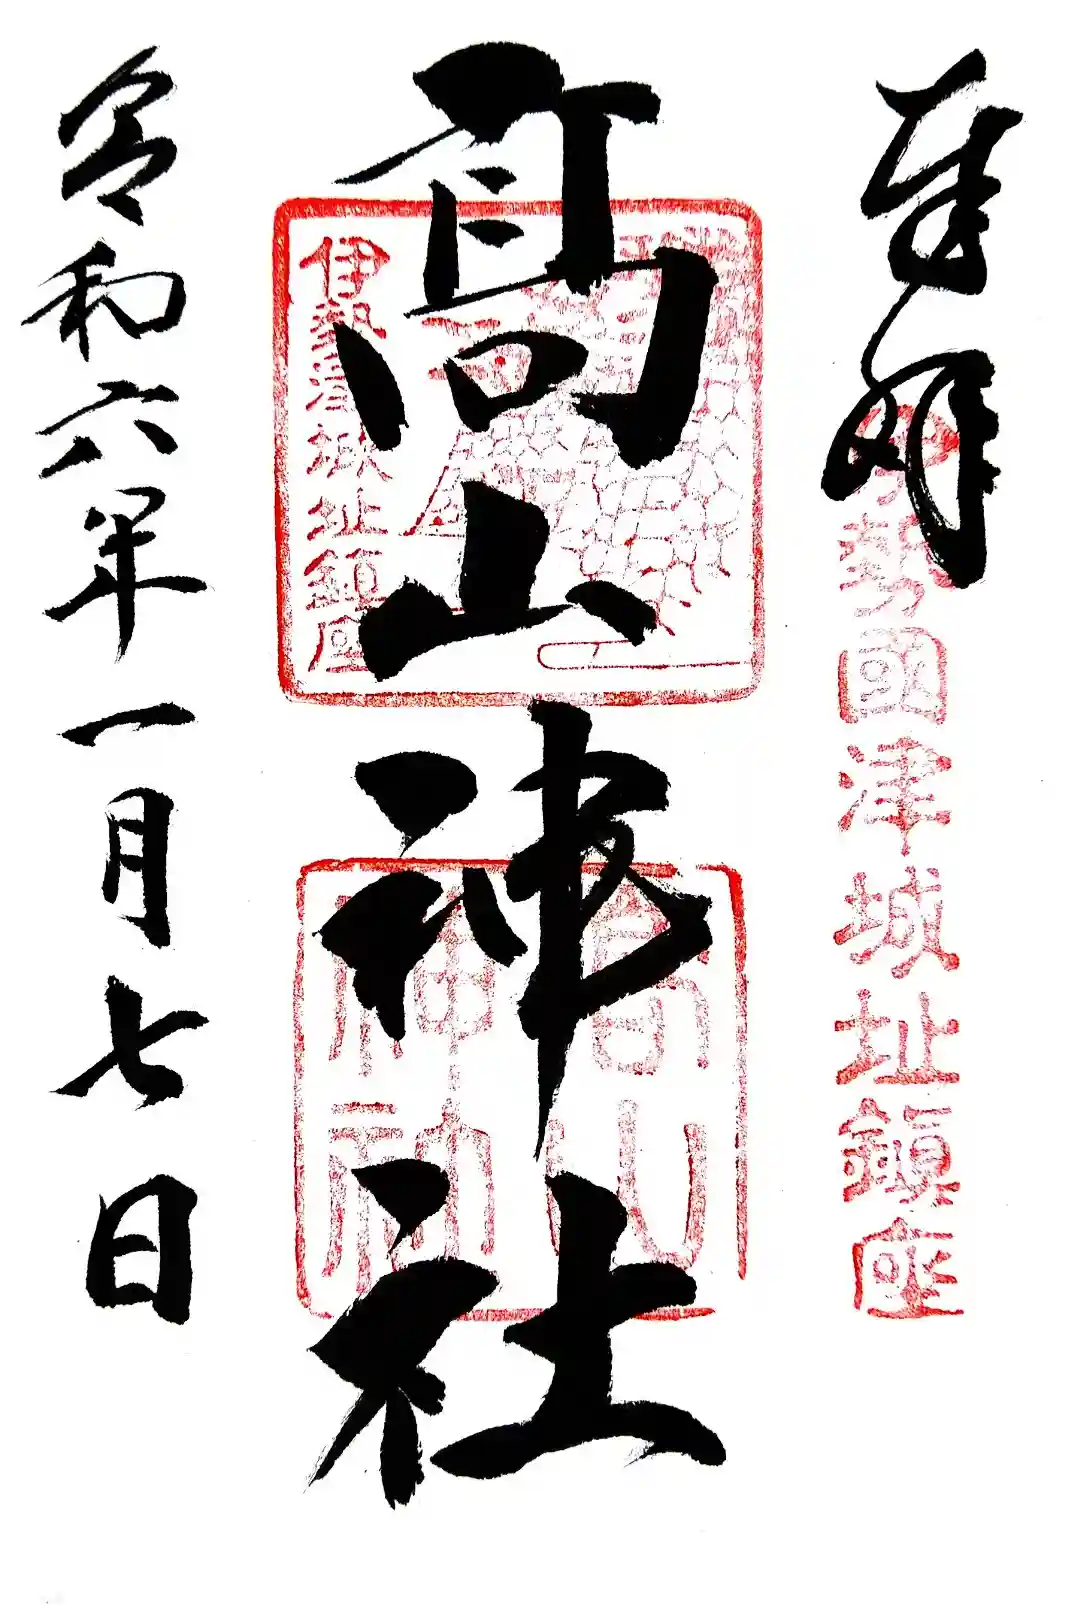 奉拝
伊勢國津城址鎮座
高山神社
伊勢津城址鎮座
高山
神社
令和六年一月七日